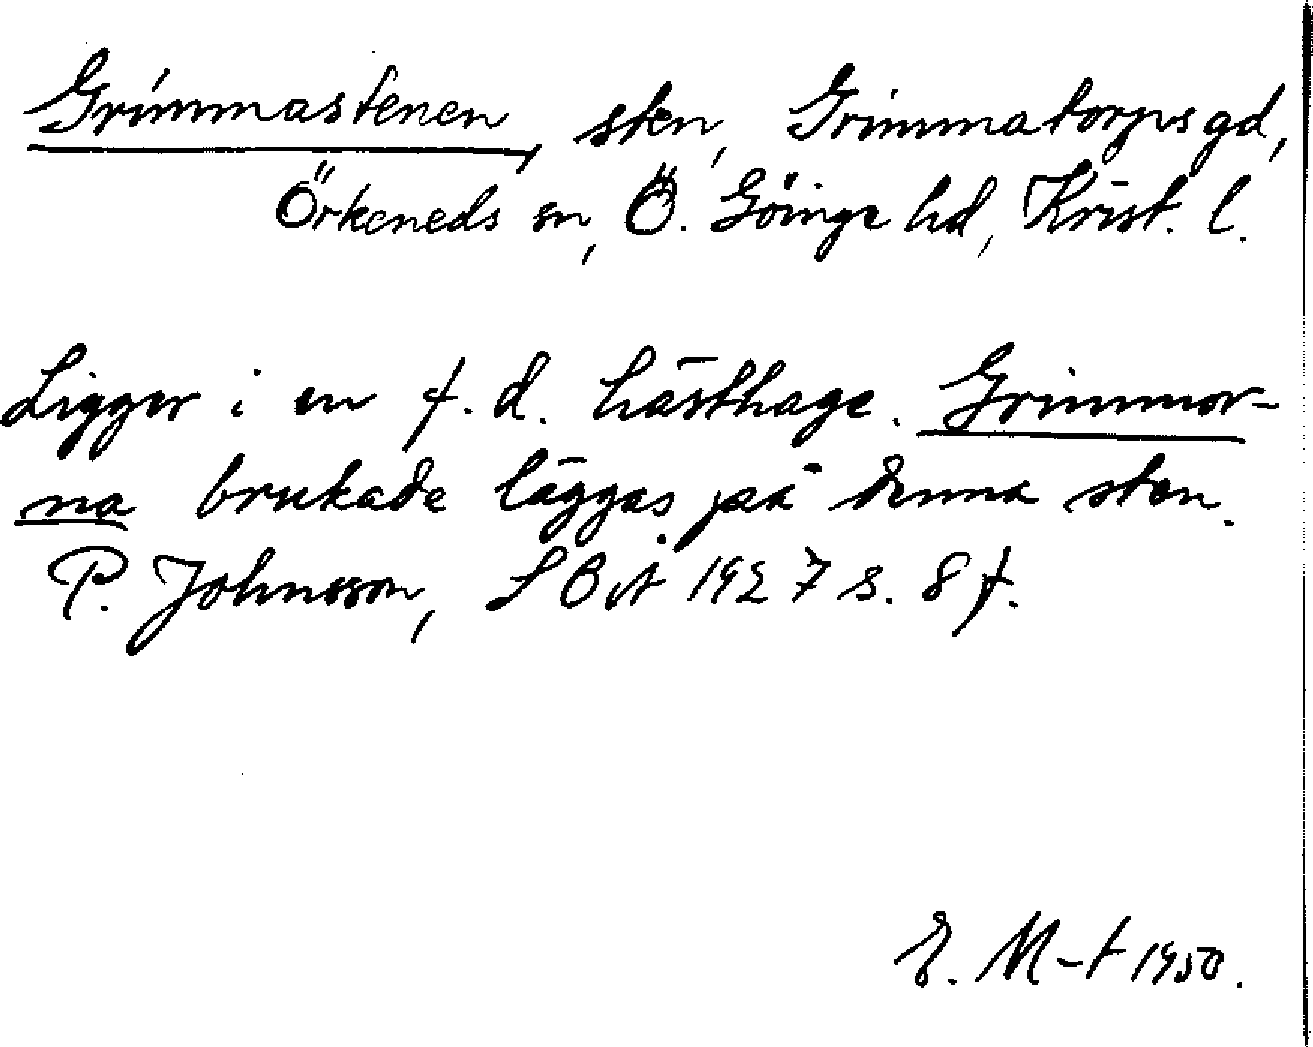 Grimmastenen, sten, Grimmatorps gd,
Örkeneds sn, Ö. Göinge hd, Krist. l.
Ligger i en f. d. hästhage. Grimmor-
na brukade läggas på denna sten.
P. Johnsson, SBiA 1927 s. 8 f.
E. M-t 1950.